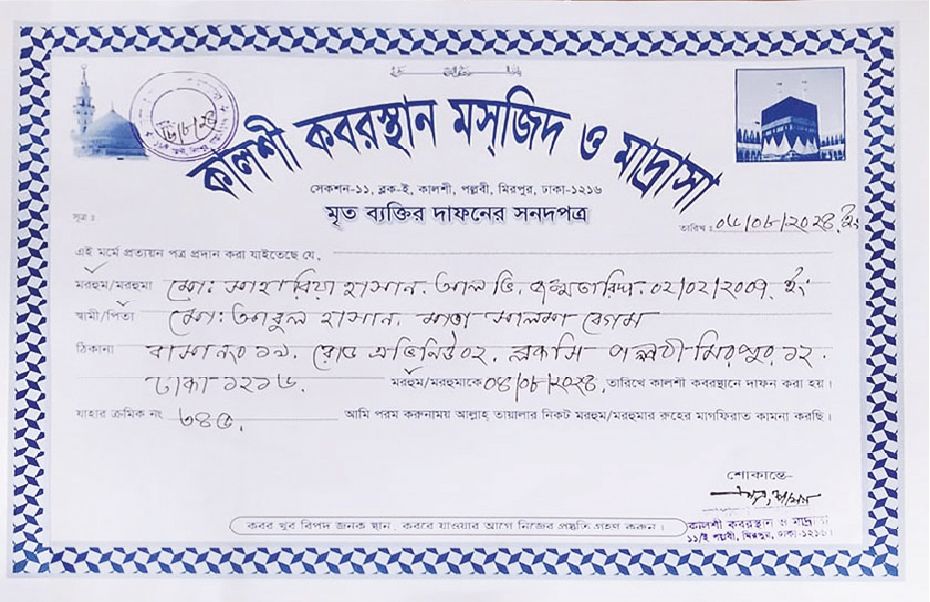 কালশী কবরস্থান মস্জিদ ও মাদ্রাসা
সেকশন-১১, ব্লক-ই, কালশী, পল্লবী, মিরপুর, ঢাকা-১২১৬
মৃত ব্যক্তির দাফনের সনদপত্র
সূত্র ঃ
তারিখ ঃ ০৫/০৮/২০২৪ ইং
এই মর্মে প্রত্যয়ন পত্র প্রদান করা যাইতেছে যে,
মরহুম/মরহুমা মো: শাহরিয়া হাসান. আলভি. জন্মতারিখ. ০২/০২/২০০৭. ইং
স্বামী/পিতা মো: আবুল হাসান. মাতা সালমা বেগম
ঠিকানা বাসা নং ১৯. রোড এভিনিউ ০২. ব্লক সি পল্লবী মিরপুর ১২.
ঢাকা ১২১৬. মরহুম/মরহুমাকে ০৫/০৮/২০২৪. তারিখে কালশী কবরস্থানে দাফন করা হয়।
যাহার ক্রমিক নং ৬৪৫. আমি পরম করুনাময় আল্লাহ্ তায়ালার নিকট মরহুম/মরহুমার রুহের মাগফিরাত কামনা করছি।
শোকান্তে-
কালশী কবরস্থান ও মাদ্রাসা
১১/ই পল্লবী, মিরপুর, ঢাকা-১২১৬।
কবর খুব বিপদ জনক স্থান, কবরে যাওয়ার আগে নিজের প্রস্তুতি গ্রহণ করুন।